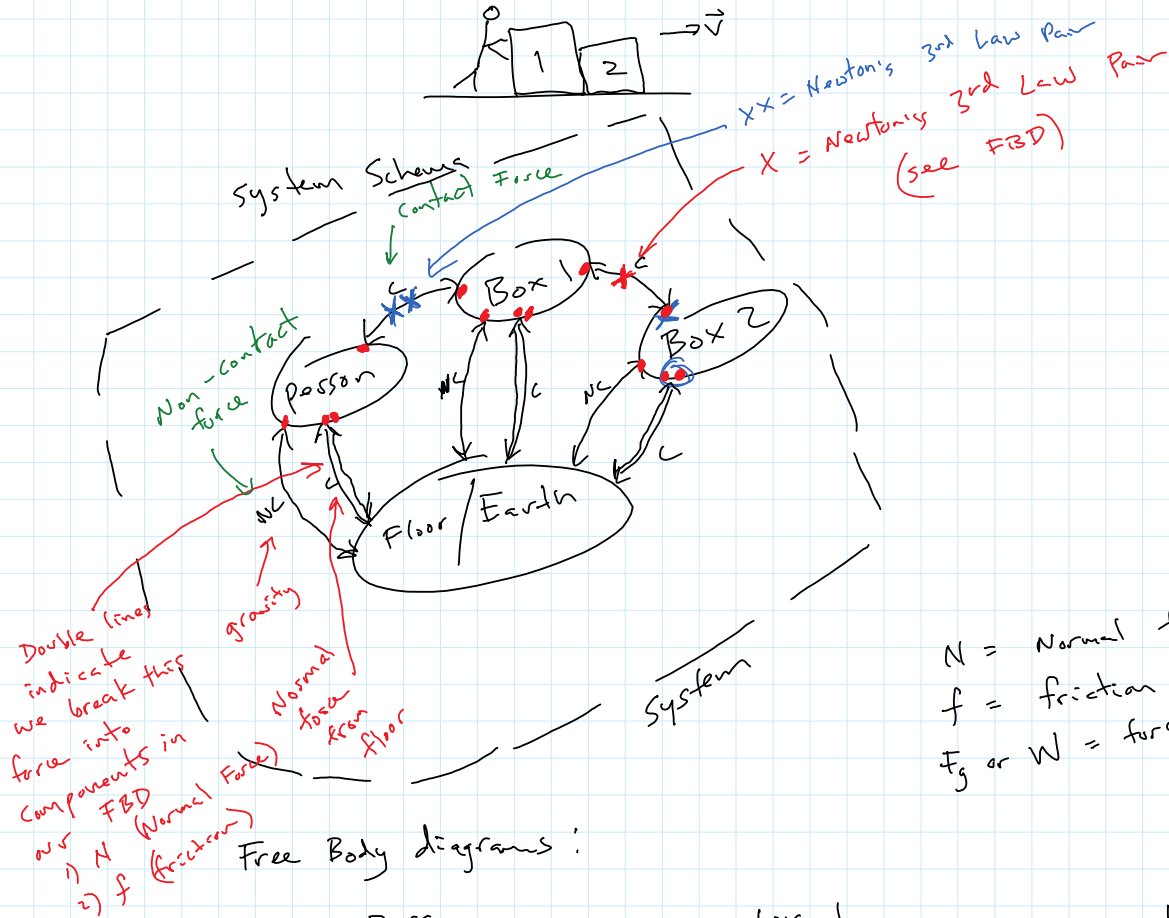 1
2
V
XX = Newton's 3rd Law Pair
X = Newton's 3rd Law Pair
(see FBD)
System Schema
Contact Force
C
C
Box 1
Box 2
Non-contact
force
person
NC
C
NC
C
NC
C
Floor / Earth
gravity
Double lines
indicate
we break this
force into
components in
our FBD
1) N (Normal Force)
2) f (friction)
Normal
force
from
floor
System
N = Normal
f = friction
Fg or W =
Free Body diagrams: